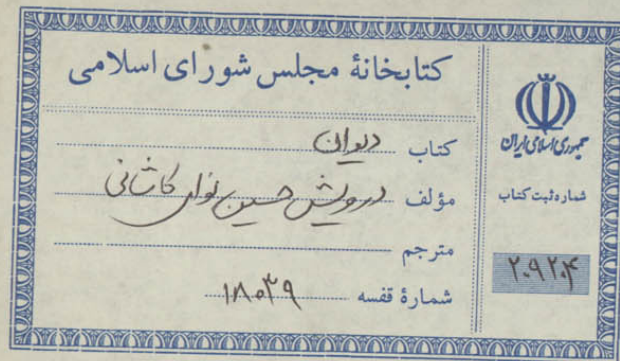 کتابخانهٔ مجلس شورای اسلامی
کتاب دیوان
مؤلف درویش حسین نوای کاشانی
مترجم
شمارهٔ قفسه ۱۸۰۳۹
جمهوری اسلامی ایران
شماره ثبت کتاب
۲۰۹۲۰۴